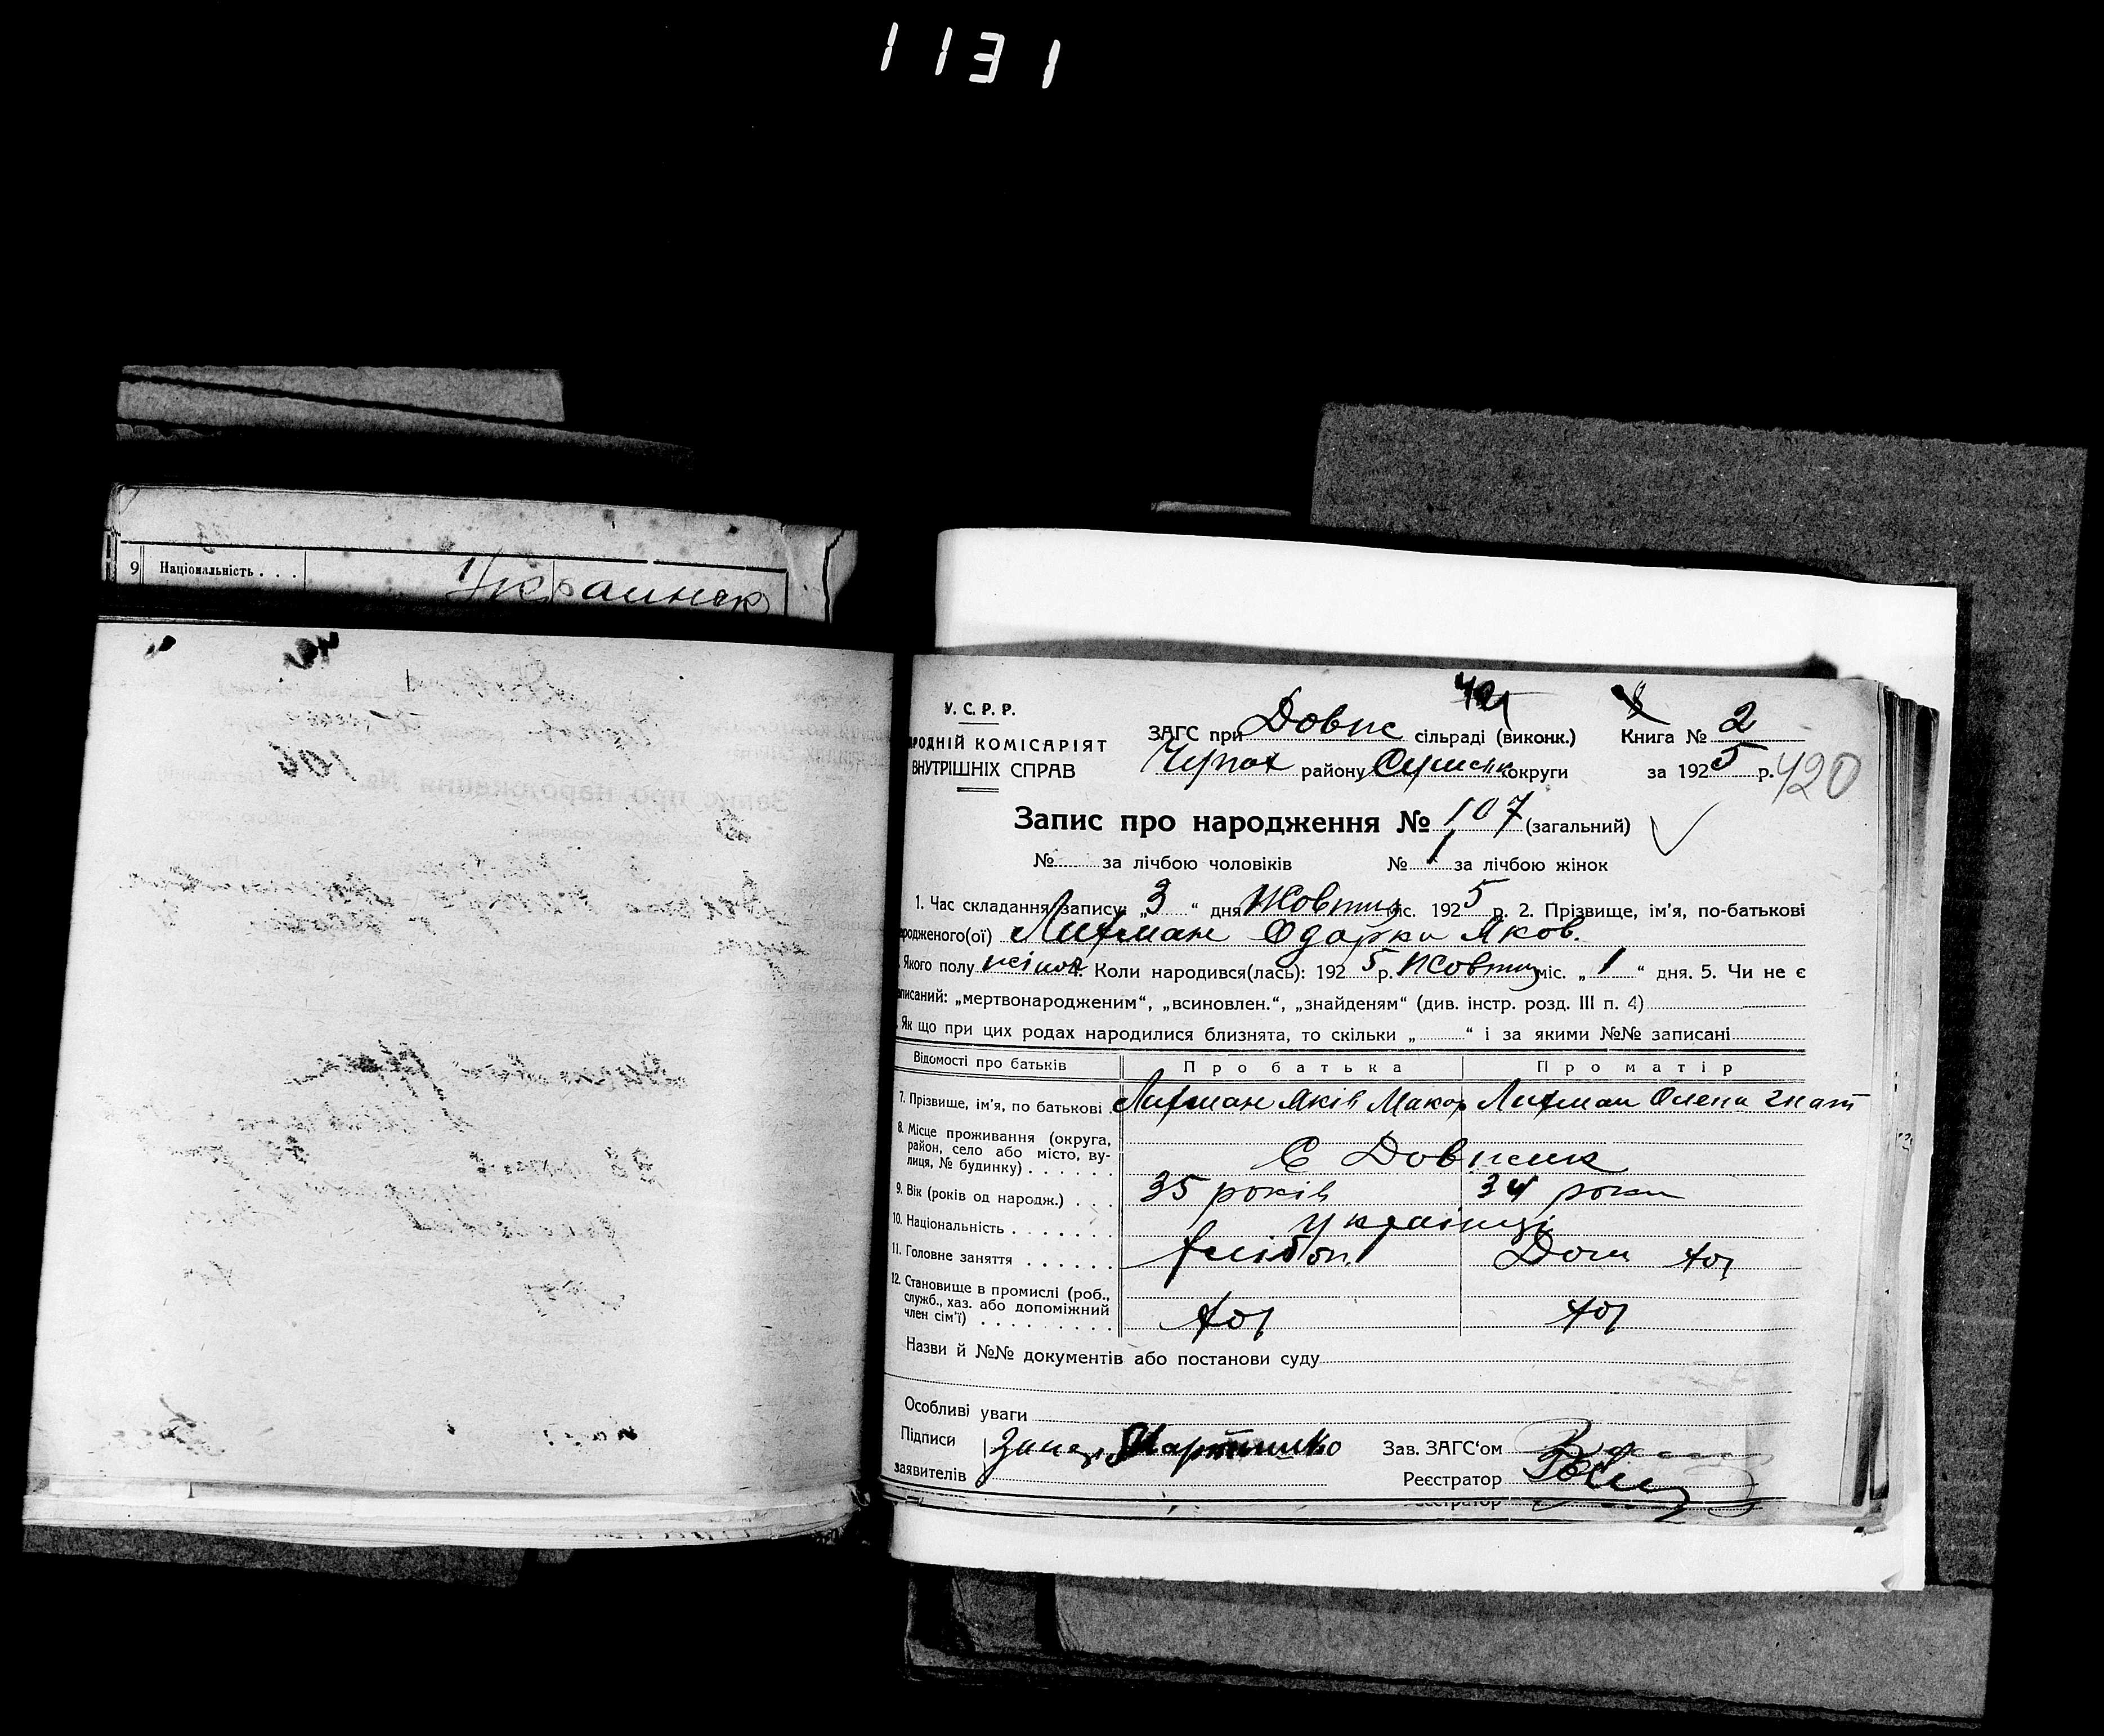 1131
9 Національність . . . Украинск
У. С. Р. Р.
РОДНІЙ КОМІСАРІЯТ
ВНУТРІШНІХ СПРАВ
ЗАГС при Довж сільраді (виконк.)
Чупах району Сумськ округи
Книга № 2
за 1925 р.
420
Запис про народження № 107 (загальний)
№ за лічбою чоловіків № 1 за лічбою жінок
1. Час складання запису: „3“ дня Жовтня міс. 1925 р. 2. Прізвище, ім'я, по-батькові
родженого(ої) Одарка Яков.
Якого полу жіноч. Коли народився(лась): 1925 р. Жовтня міс. „1“ дня. 5. Чи не є
аписаний: „мертвонародженим“, „всиновлен.“, „знайденям“ (див. інстр. розд. III п. 4)
Як що при цих родах народилися близнята, то скільки „ “ і за якими №№ записані
Відомості про батьків Про батька Про матір
7. Прізвище, ім'я, по батькові Яків Макар Олена Гнат
8. Місце проживання (округа, район, село або місто, вулиця, № будинку) . . . . . . С Довжик
9. Вік (років од народж.) . . . 35 років 34 роки
10. Національність . . . . . . . українці
11. Головне заняття . . . . . . хлібор. Дом хоз
12. Становище в промислі (роб., служб., хаз. або допоміжний член сім'ї) . . . . . . . . . хоз хоз
Назви й №№ документів або постанови суду
Особливі уваги
Підписи
заявителів
Зав. ЗАГС'ом
Реєстратор